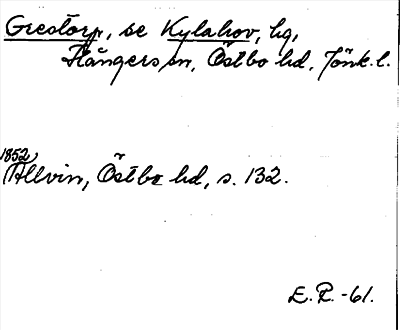 Grestorp, se Kylahov, hg,
Hångers sn, Östbo hd, Jönk. l.
1852,
Allvin, Östbo hd, s. 132.
E. P. -61.